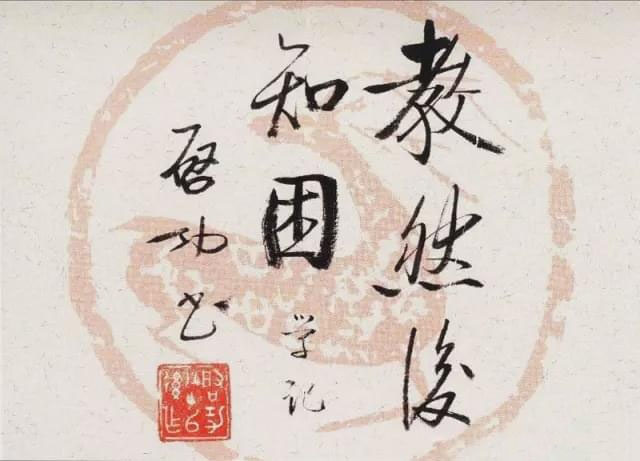 教然後
知困
学记
啓功书